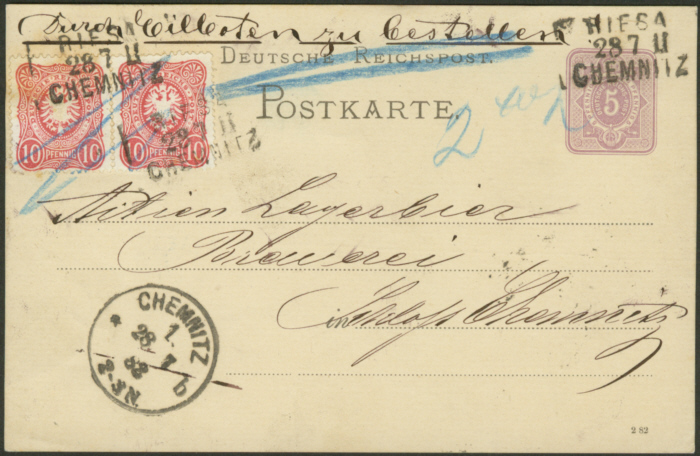 Durch Eilboten zu bestellen
RIESA
28 7 II
CHEMNITZ
DEUTSCHE REICHSPOST.
POSTKARTE.
RIESA
28 7 II
CHEMNITZ
5
10 PFENNIG 10
10 PFENNIG 10
28 7 II
CHEMNITZ
2
Aktien Lagerbier
Brauerei
Schloss Chemnitz
CHEMNITZ
1.
28 7
83
2-3 N.
b
2 82